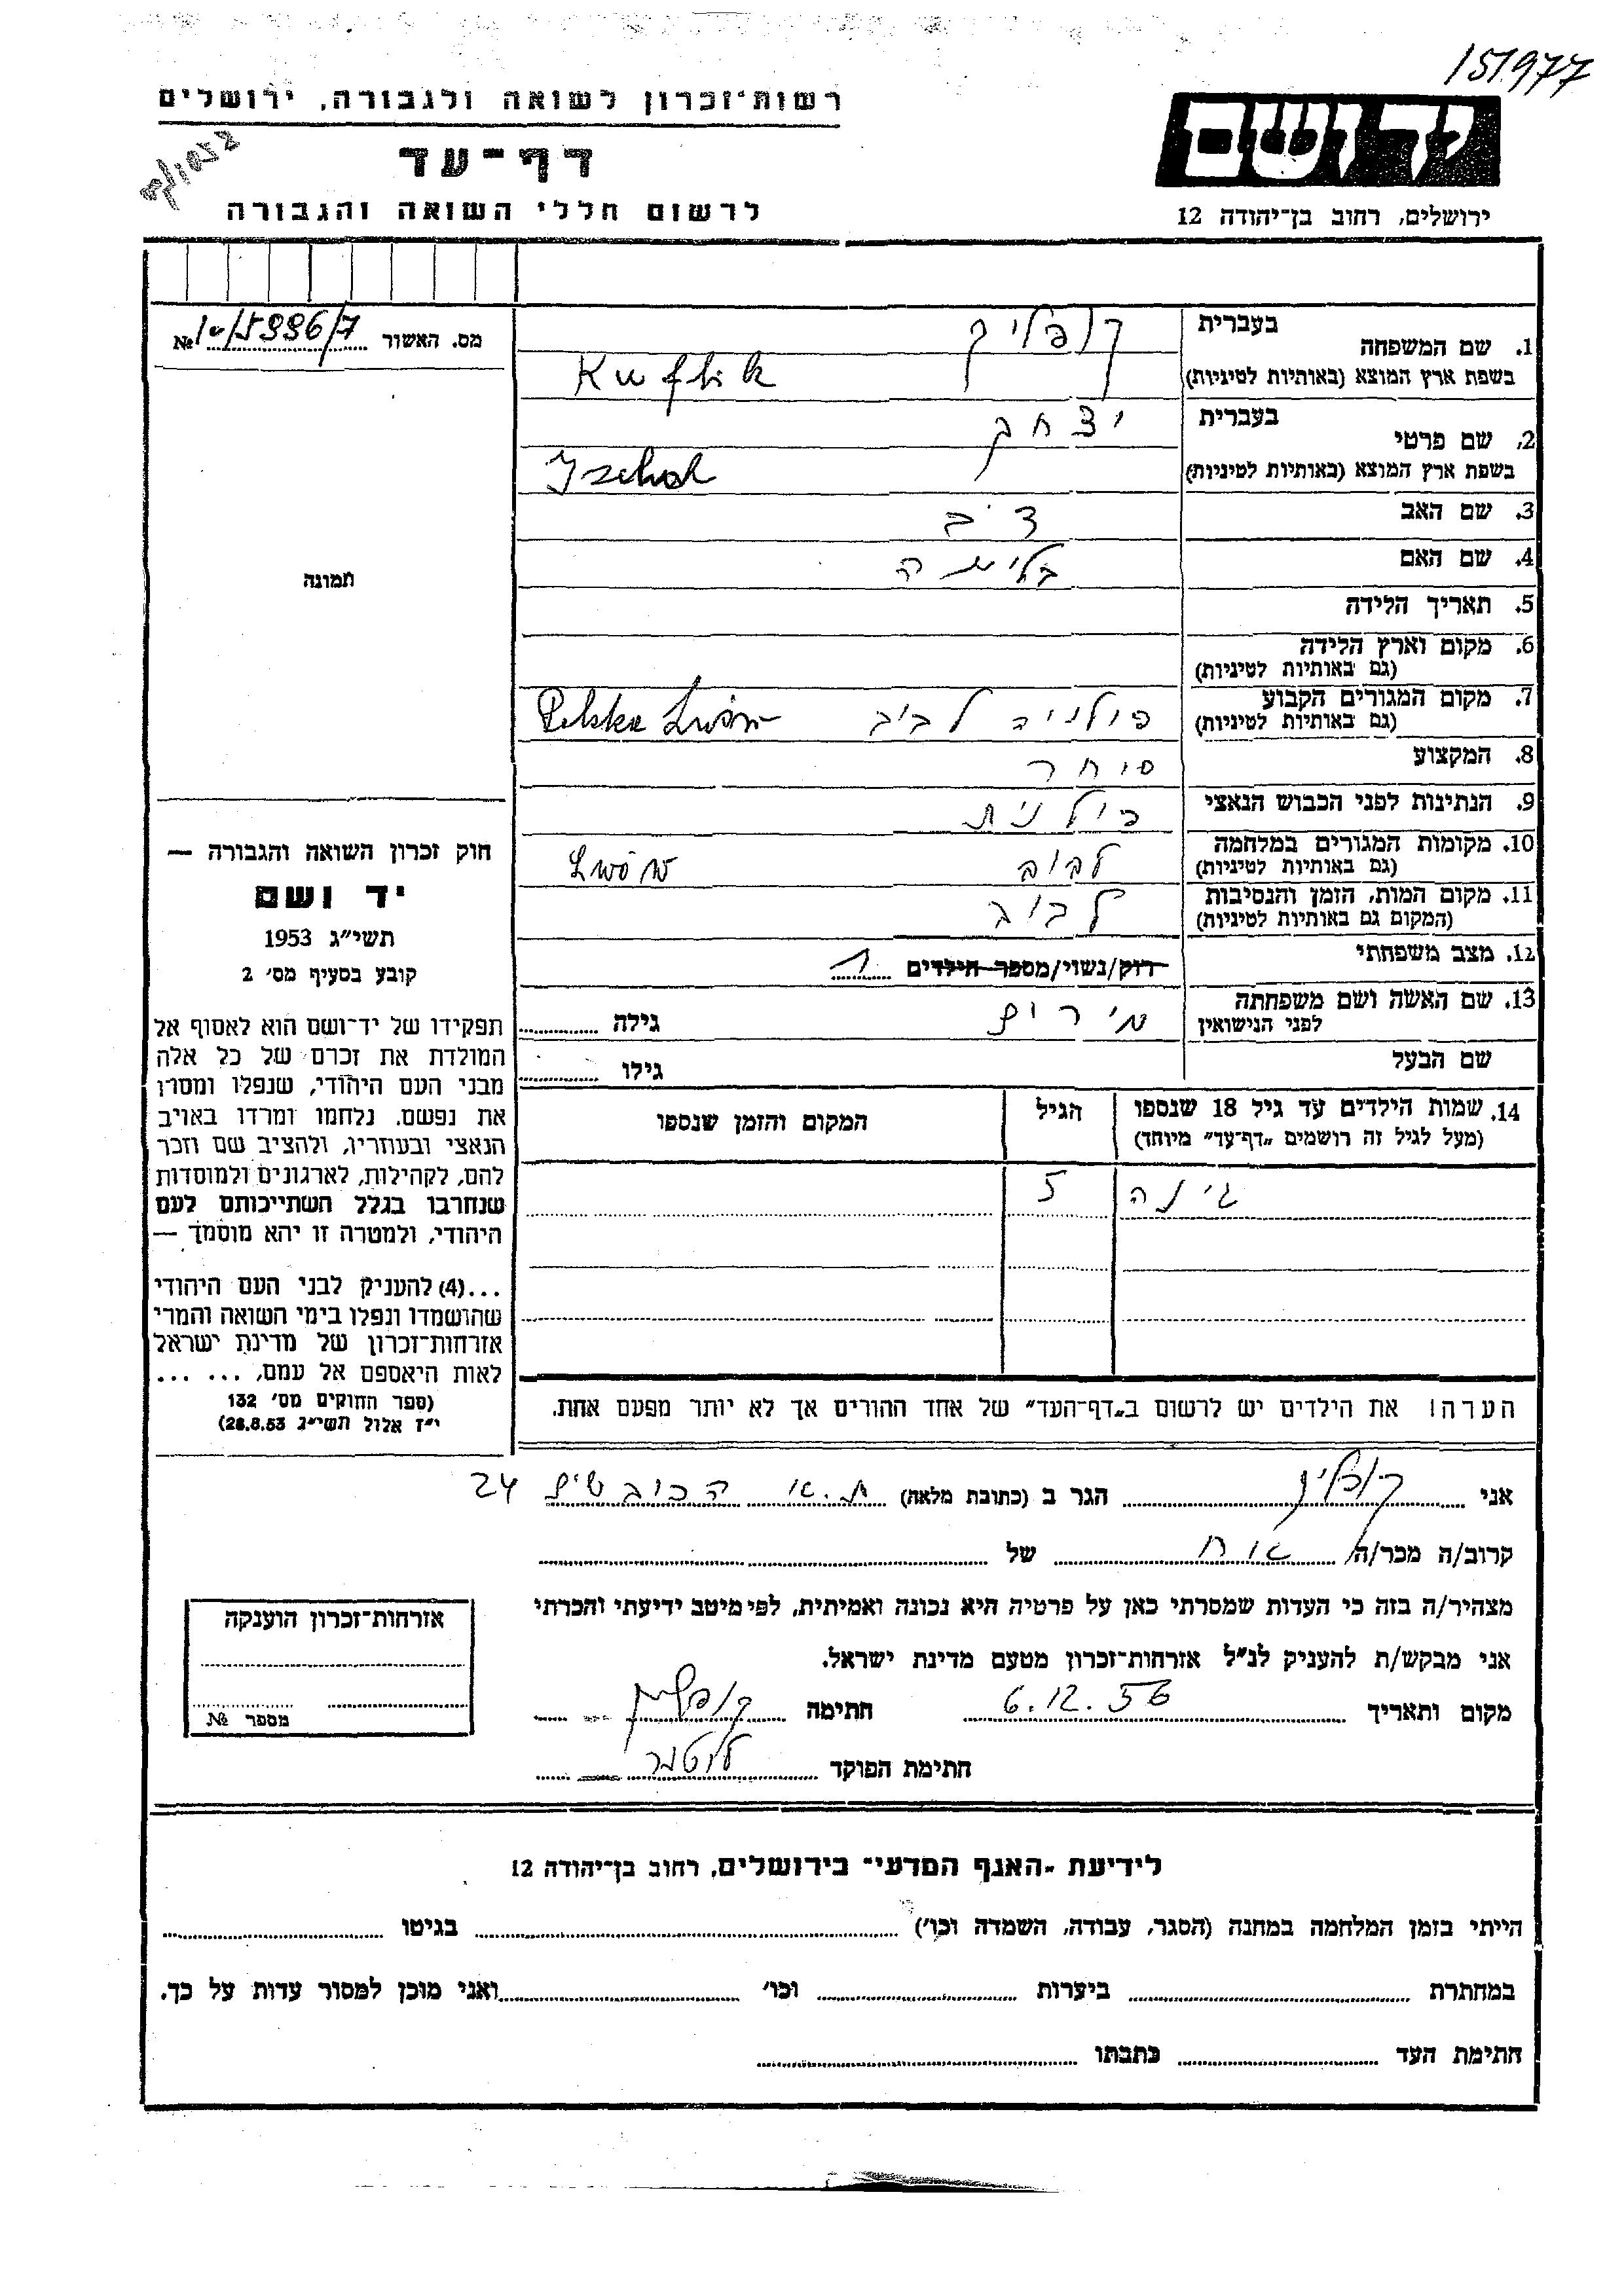 151977
רשות־זכרון לשואה ולגבורה, ירושלים
דף־עד
לרשום חללי השואה והגבורה
יד ושם
ירושלים, רחוב בן־יהודה 12
מס. האשור № 10/5996/7
תמונה
1. שם המשפחה בעברית קופליק
בשפת ארץ המוצא (באותיות לטיניות) Kuflik
2. שם פרטי בעברית יצחק
בשפת ארץ המוצא (באותיות לטיניות)
3. שם האב
4. שם האם
5. תאריך הלידה
6. מקום וארץ הלידה
(גם באותיות לטיניות)
7. מקום המגורים הקבוע פולניה לבוב Polska Lwów
(גם באותיות לטיניות)
8. המקצוע סוחר
9. הנתינות לפני הכבוש הנאצי פולנית
10. מקומות המגורים במלחמה לבוב Lwów
(גם באותיות לטיניות)
11. מקום המות, הזמן והנסיבות לבוב
(המקום גם באותיות לטיניות)
12. מצב משפחתי רווק/נשוי/מספר הילדים 1
13. שם האשה ושם משפחתה מרים גילה
לפני הנישואין
שם הבעל גילו
14. שמות הילדים עד גיל 18 שנספו הגיל המקום והזמן שנספו
(מעל לגיל זה רושמים "דף־עד" מיוחד)
גינה 5
הערה! את הילדים יש לרשום ב"דף־העד" של אחד ההורים אך לא יותר מפעם אחת.
חוק זכרון השואה והגבורה —
יד ושם
תשי"ג 1953
קובע בסעיף מס׳ 2
תפקידו של יד־ושם הוא לאסוף אל
המולדת את זכרם של כל אלה
מבני העם היהודי, שנפלו ומסרו
את נפשם, נלחמו ומרדו באויב
הנאצי ובעוזריו, ולהציב שם וזכר
להם, לקהילות, לארגונים ולמוסדות
שנחרבו בגלל השתייכותם לעם
היהודי, ולמטרה זו יהא מוסמך —
...(4) להעניק לבני העם היהודי
שהושמדו ונפלו בימי השואה והמרי
אזרחות־זכרון של מדינת ישראל
לאות היאספם אל עמם, ... ...
(ספר החוקים מס׳ 132
י"ז אלול תשי"ג 28.8.53)
אני קופליק הגר ב (כתובת מלאה) ת.א. 24
קרוב/ה מכר/ה אח של
מצהיר/ה בזה כי העדות שמסרתי כאן על פרטיה היא נכונה ואמיתית, לפי מיטב ידיעתי והכרתי
אני מבקש/ת להעניק לנ"ל אזרחות־זכרון מטעם מדינת ישראל.
מקום ותאריך 6.12.56 חתימה קופליק
חתימת הפוקד
אזרחות־זכרון הוענקה
מספר №
לידיעת "האגף המדעי" בירושלים, רחוב בן־יהודה 12
הייתי בזמן המלחמה במחנה (הסגר, עבודה, השמדה וכו׳) בגיטו
במחתרת ביערות וכו׳ ואני מוכן למסור עדות על כך.
חתימת העד כתבתו